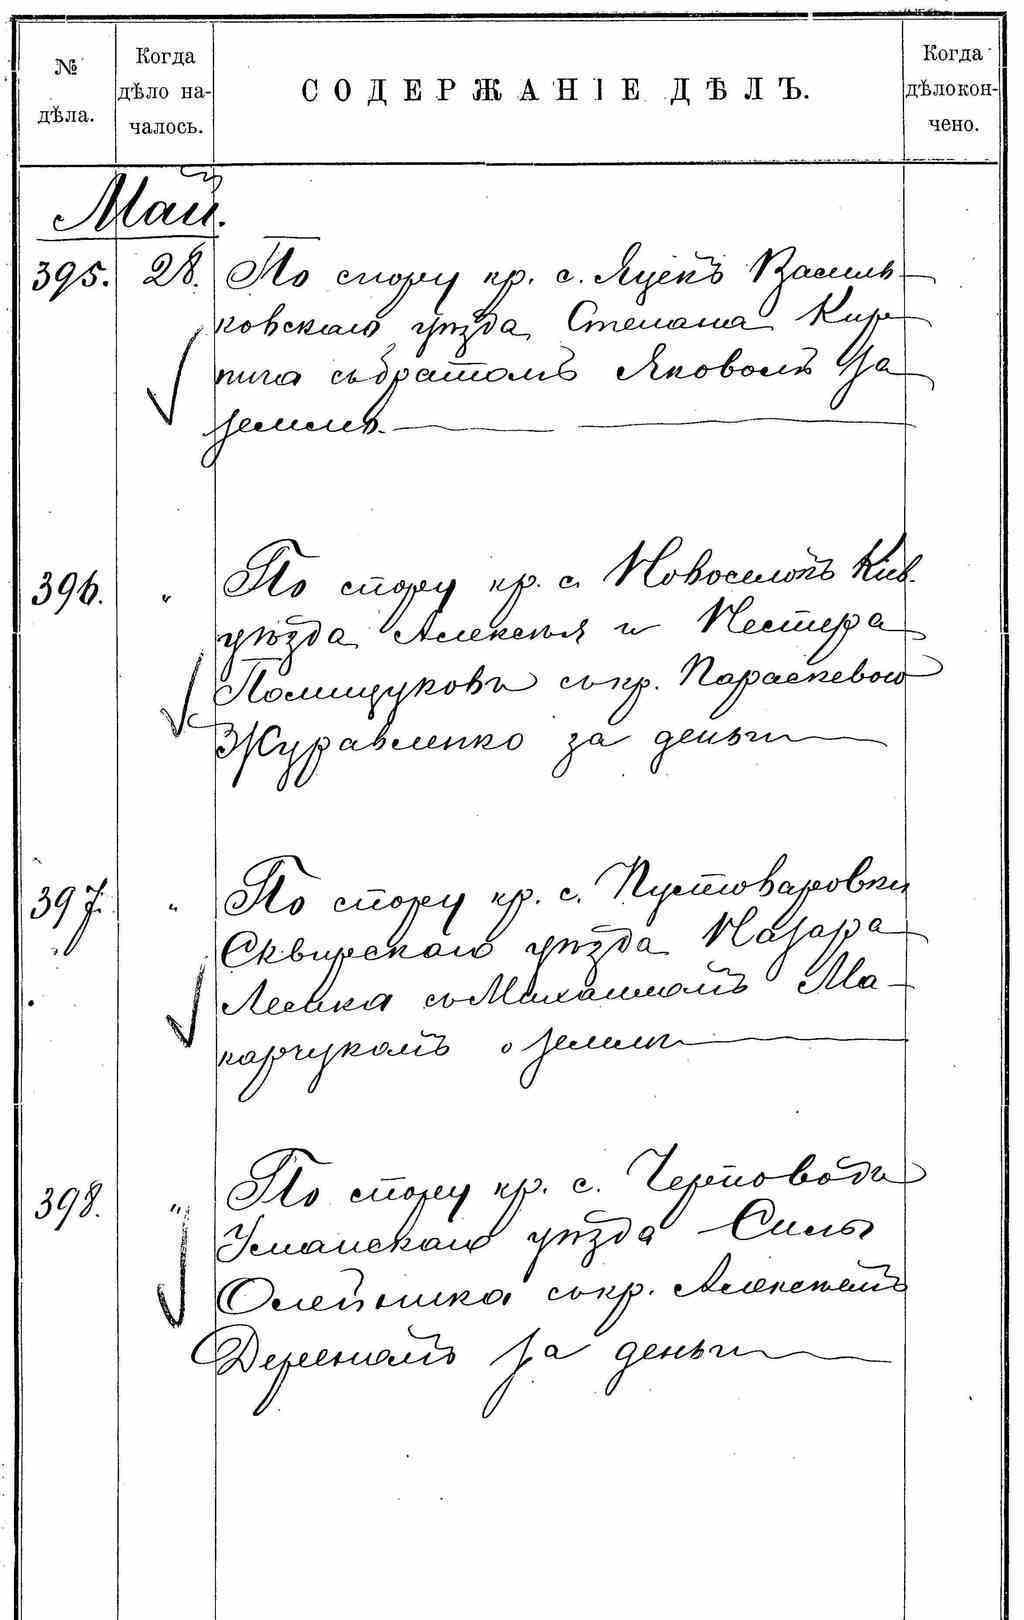 № дѣла.
Когда дѣло на-
чалось.
СОДЕРЖАНІЕ ДѢЛЪ.
Когда
дѣло кон-
чено.
Май.
395. 28. По спору кр. с. Яцекъ Василь-
ковскаго уѣзда Степана Кир-
пича съ братомъ Яковомъ за
землю.
396. " По спору кр. с. Новоселокъ Кіев.
уѣзда Алексѣя и Нестера
Полищуковъ съ кр. Параскевою
Журавленко за деньги
397. " По спору кр. с. Пустоваровки
Сквирскаго уѣзда Назара
Лесика съ Михаиломъ Ма-
карчукомъ о землѣ
398. " По спору кр. с. Черповодъ
Уманскаго уѣзда Силы
Олейника съ кр. Алексѣемъ
за деньги